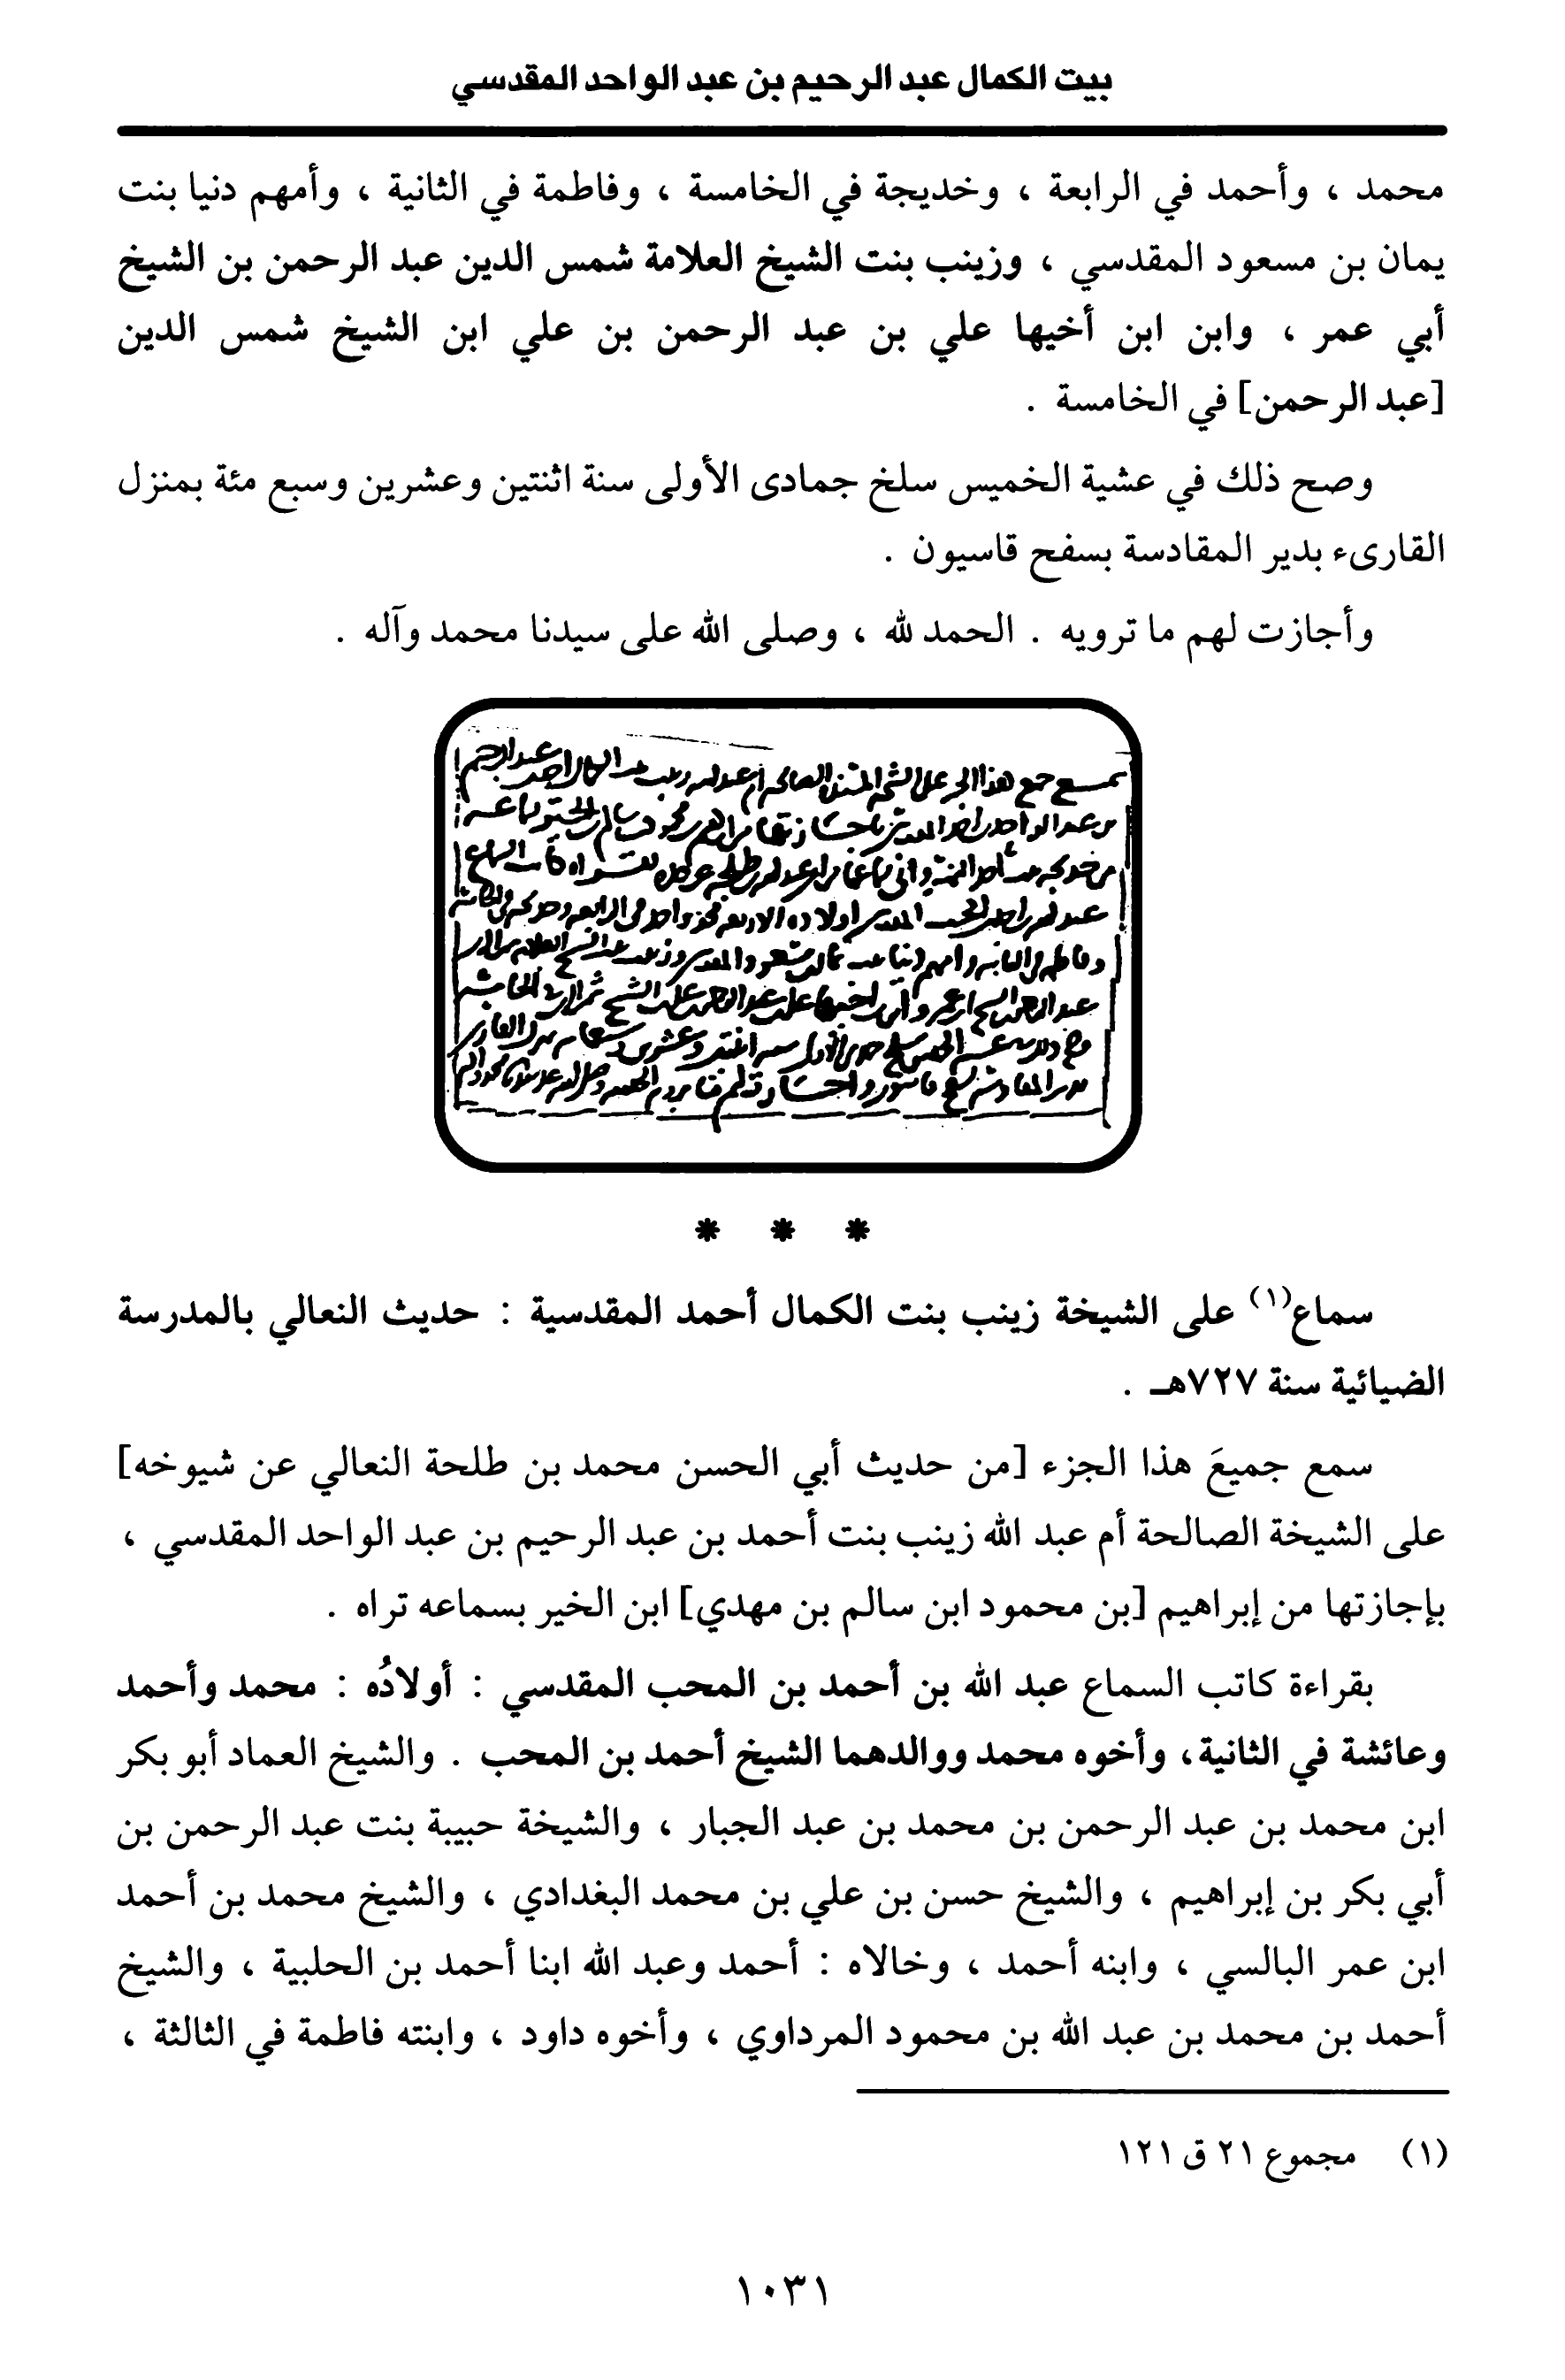 بيت الكمال عبد الرحيم بن عبد الواحد المقدسي
محمد ، وأحمد في الرابعة ، وخديجة في الخامسة ، وفاطمة في الثانية ، وأمهم دنيا بنت
يمان بن مسعود المقدسي ، وزينب بنت الشيخ العلامة شمس الدين عبد الرحمن بن الشيخ
أبي عمر ، وابن ابن أخيها علي بن عبد الرحمن بن علي ابن الشيخ شمس الدين
[عبد الرحمن] في الخامسة .
وصح ذلك في عشية الخميس سلخ جمادى الأولى سنة اثنتين وعشرين وسبع مئة بمنزل
القارىء بدير المقادسة بسفح قاسيون .
وأجازت لهم ما ترويه . الحمد لله ، وصلى الله على سيدنا محمد وآله .
* * *
سماع(١) على الشيخة زينب بنت الكمال أحمد المقدسية : حديث النعالي بالمدرسة
الضيائية سنة ٧٢٧هـ .
سمع جميعَ هذا الجزء [من حديث أبي الحسن محمد بن طلحة النعالي عن شيوخه]
على الشيخة الصالحة أم عبد الله زينب بنت أحمد بن عبد الرحيم بن عبد الواحد المقدسي ،
بإجازتها من إبراهيم [بن محمود ابن سالم بن مهدي] ابن الخير بسماعه تراه .
بقراءة كاتب السماع عبد الله بن أحمد بن المحب المقدسي : أولادُه : محمد وأحمد
وعائشة في الثانية، وأخوه محمد ووالدهما الشيخ أحمد بن المحب . والشيخ العماد أبو بكر
ابن محمد بن عبد الرحمن بن محمد بن عبد الجبار ، والشيخة حبيبة بنت عبد الرحمن بن
أبي بكر بن إبراهيم ، والشيخ حسن بن علي بن محمد البغدادي ، والشيخ محمد بن أحمد
ابن عمر البالسي ، وابنه أحمد ، وخالاه : أحمد وعبد الله ابنا أحمد بن الحلبية ، والشيخ
أحمد بن محمد بن عبد الله بن محمود المرداوي ، وأخوه داود ، وابنته فاطمة في الثالثة ،
(١) مجموع ٢١ ق ١٢١
١٠٣١